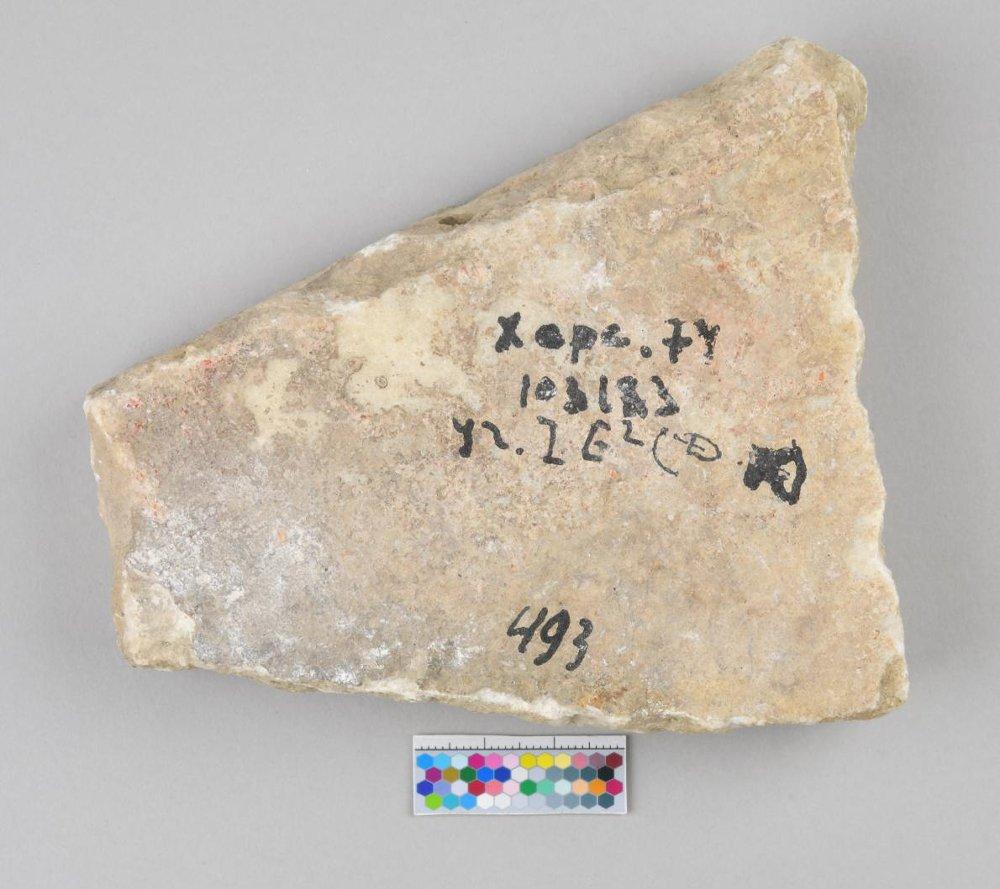 Херс. 74
103183
уг. I Б² (Ю
493